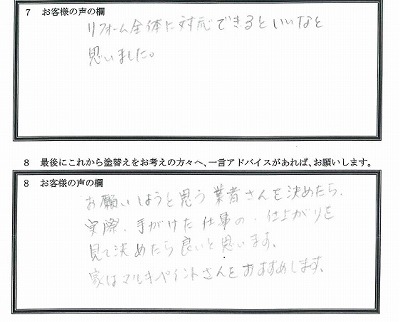 7 お客様の声の欄
リフォーム全体に対応できるといいなと
思いました。
8 最後にこれから塗替えをお考えの方々へ、一言アドバイスがあれば、お願いします。
8 お客様の声の欄
お願いしようと思う業者さんを決めたら、
実際、手がけた仕事の、仕上がりを
見て決めたら良いと思います。
家はマルキペイントさんをおすすめします。